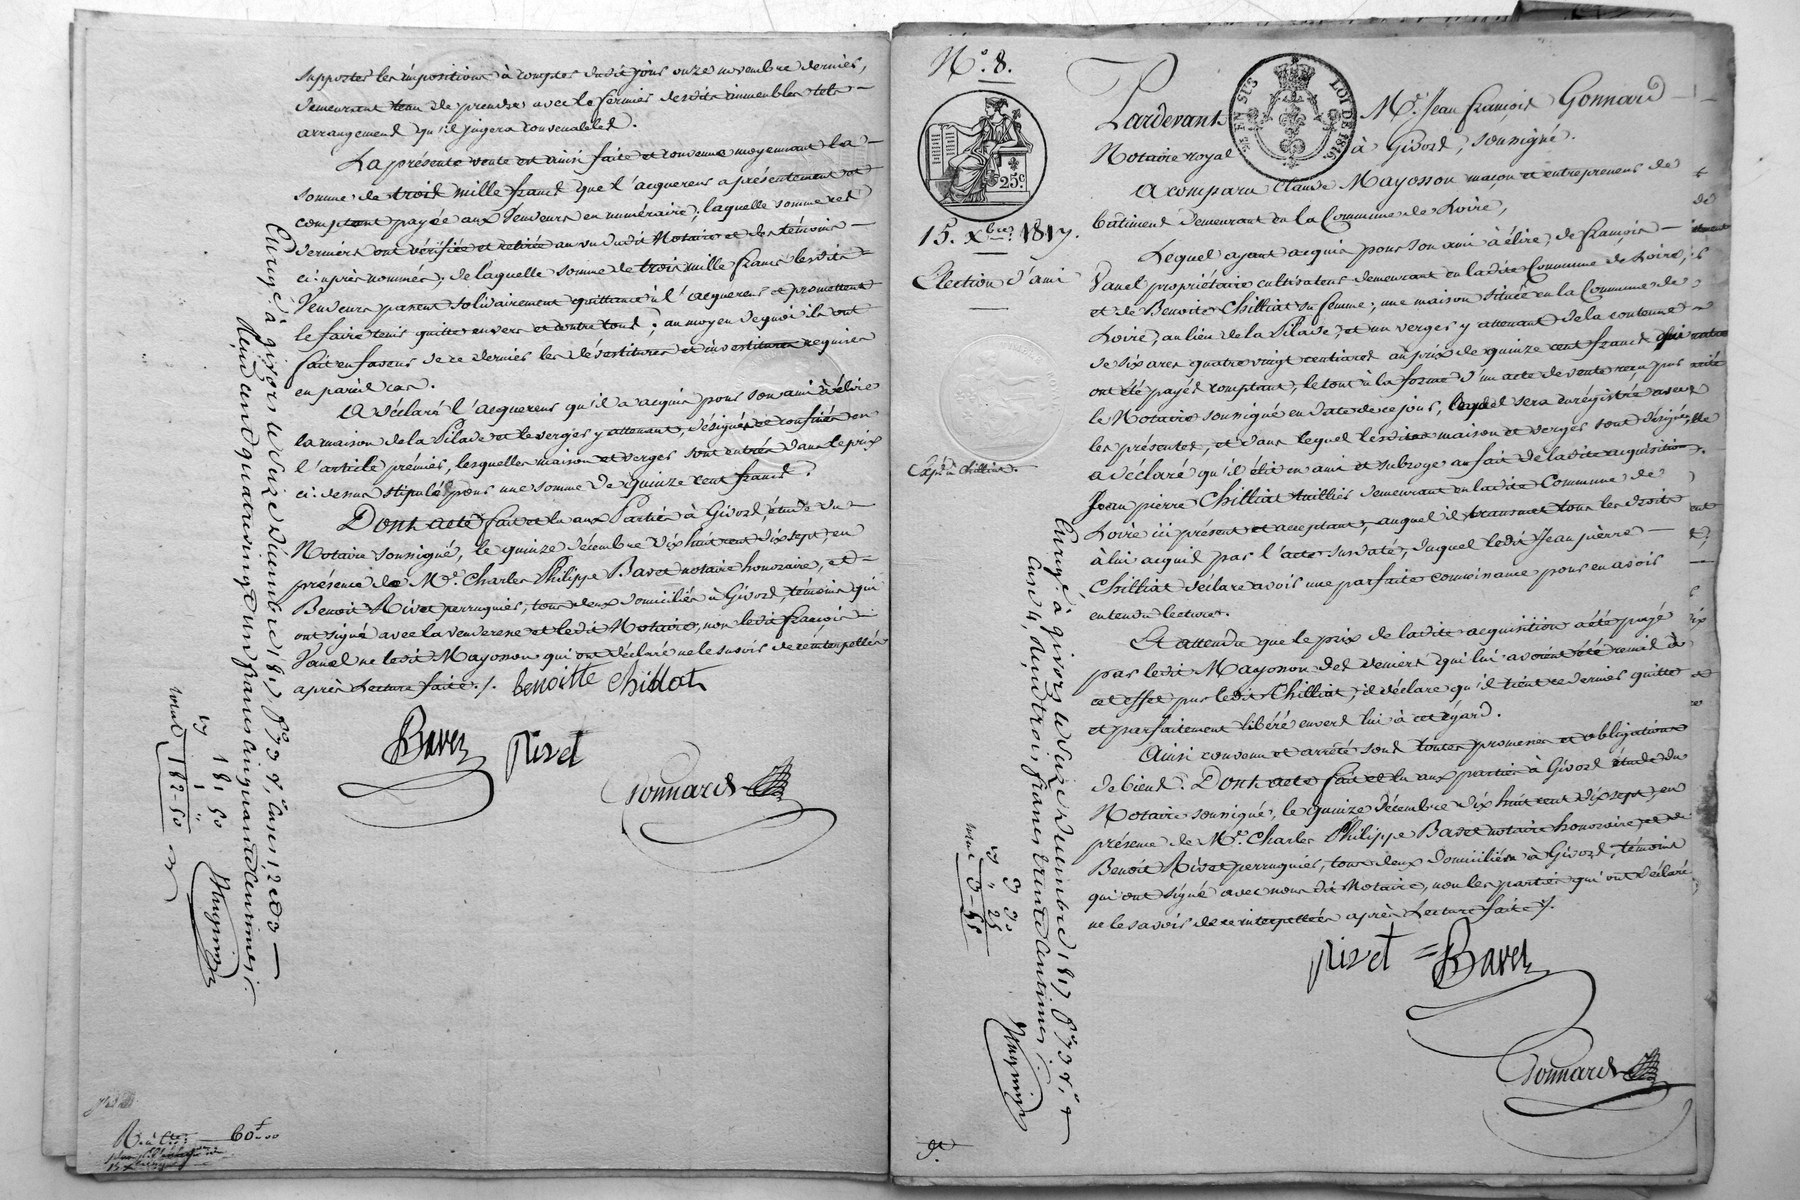 supporter les impositions à compter dudit jour onze novembre dernier,
demeurant tenu de prendre avec le fermier desdits immeubles tels
arrangements qu'il jugera convenables.
La présente vente est ainsi faite et convenue moyennant la
somme de trois mille francs que l'acquereur a présentement et
comptant payée aux Vendeurs en numéraire; laquelle somme ces
derniers ont vérifiée et retirée au vu dudit Notaire et des témoins
ci-après nommés; de laquelle somme de trois mille francs lesdits
Vendeurs passent solidairement quittance à l'acquereur et promettent
le faire tenir quitte envers et contre tous; au moyen de quoi ils ont
fait en faveur de ce dernier les dévestitures et investitures requises
en pareil cas.
A déclaré l'acquereur qu'il a acquis pour son ami à élire
la maison de la Pilade et le verger y attenant, désignés et confinés en
l'article premier, lesquelles maison et verger sont entrés dans le prix
ci-dessus stipulé pour une somme de quinze cent francs.
Dont acte fait et lu aux Parties à Givors, étude du
Notaire soussigné, le quinze décembre dix huit cent dix sept, en
présence de Mr. Charles Philippe Bavet notaire honoraire, et
Benoit Rivet perruquier, tous deux domiciliés à Givors, témoins qui
ont signé avec la venderesse et ledit Notaire, non ledit françois
Vanel ne ledit Mayosson qui ont déclaré ne le savoir de ce interpellés
après Lecture faite ./. benoitte chillat
Bavet Rivet
Gonnard
Enregé à givors le seize décembre 1817 fo 73 Vo Cases 1, 2 et 3
Reçu cent quatre vingt un francs cinquante centimes
181 50
182-50
60f 00
No. 8.
EN SUS LOI DE 1816
25c
15. Xbre. 1817.
Election d'ami
Expé. à Chilliat.
Pardevant Mr. Jean François Gonnard
Notaire royal à Givors, soussigné.
A comparu Claude Mayosson maçon et entrepreneur de
bâtiment demeurant en la Commune de Loire,
Lequel ayant acquis pour son ami à élire, de françois
Vanel propriétaire cultivateur demeurant en ladite Commune de Loire,
et de Benoite Chilliat sa femme, une maison située en la Commune de
Loire, au lieu de la Pilade, et un verger y attenant de la contenue
de six ares quatre vingt centiares au prix de quinze cent francs qui
ont été payés comptant, le tout à la forme d'un acte de vente reçu par
le Notaire soussigné en date de ce jour, lequel sera enregistré avec
les présentes, et dans lequel lesdites maison et verger sont désignés,
a déclaré qu'il élit en ami et subroge au fait de ladite acquisition
Jean pierre Chilliat tuillier demeurant en ladite Commune de
Loire ici présent et acceptant, auquel il transmet tous les droits
à lui acquis par l'acte susdaté, duquel ledit Jean pierre
Chilliat déclare avoir une parfaite connoissance pour en avoir
entendu lecture.
Et attendu que le prix de ladite acquisition a été payé
par ledit Mayosson des deniers qui lui avoient été remis à
cet effet par ledit Chilliat, il déclare qu'il tient ce dernier quitte
et parfaitement libéré envers lui à cet égard.
Ainsi convenu et arrêté sous toutes promesses et obligations
de biens. Dont acte fait et lu aux parties à Givors étude du
Notaire soussigné, le quinze décembre dix huit cent dix sept, en
présence de Mr. Charles Philippe Bavet notaire honoraire, et de
Benoit Rivet perruquier, tous deux domiciliés à Givors, témoins
qui ont signé avec nous dit Notaire, non les parties qui ont déclaré
ne le savoir de ce interpellés après Lecture faite ./.
Rivet = Bavet
Gonnard
Enregé à givors le seize décembre 1817 fo 73 Vo
Case 4, Reçu trois francs trente centimes